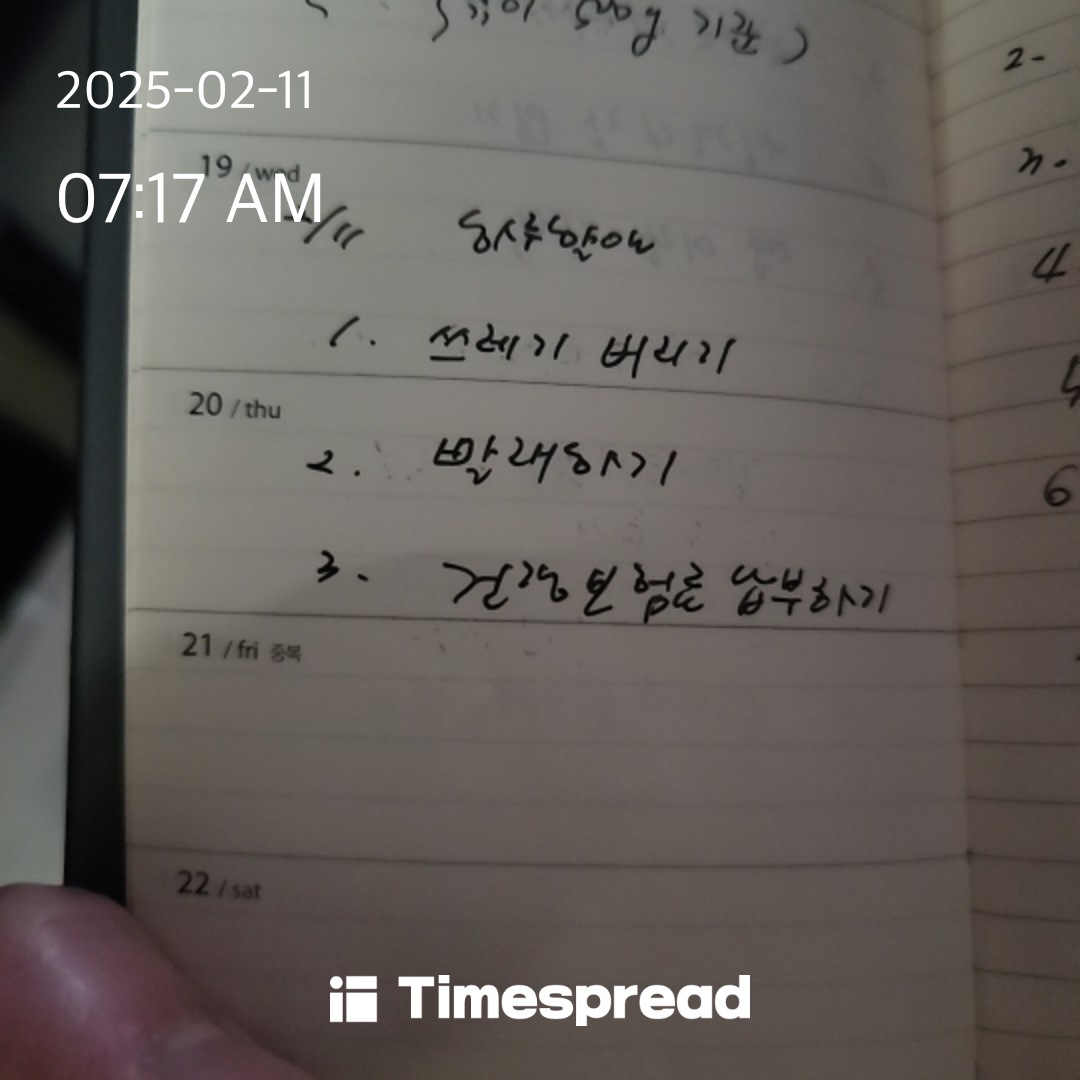 기간)
2025-02-11
19 / wed
07:17 AM
2/11 하루할일
1. 쓰레기 버리기
20 / thu
2. 빨래하기
3. 건강보험료 납부하기
21 / fri 중복
22 / sat
2-
3-
4
6
Timespread